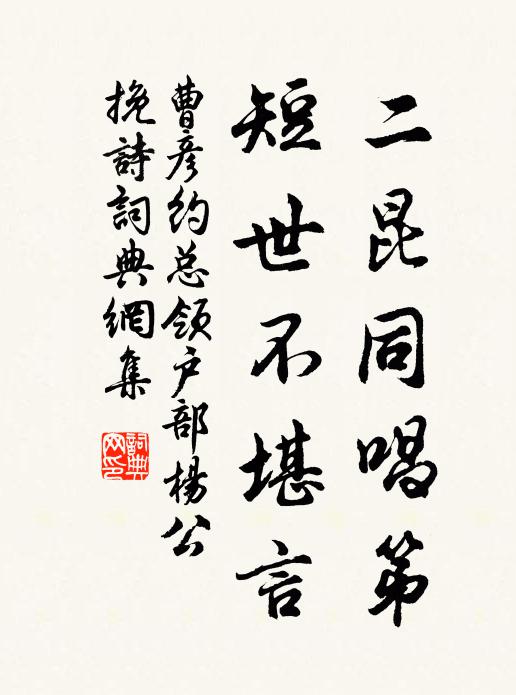 二昆同唱第
短世不堪言
曹彦约总领户部杨公
挽詩詞典網集
詞典网印